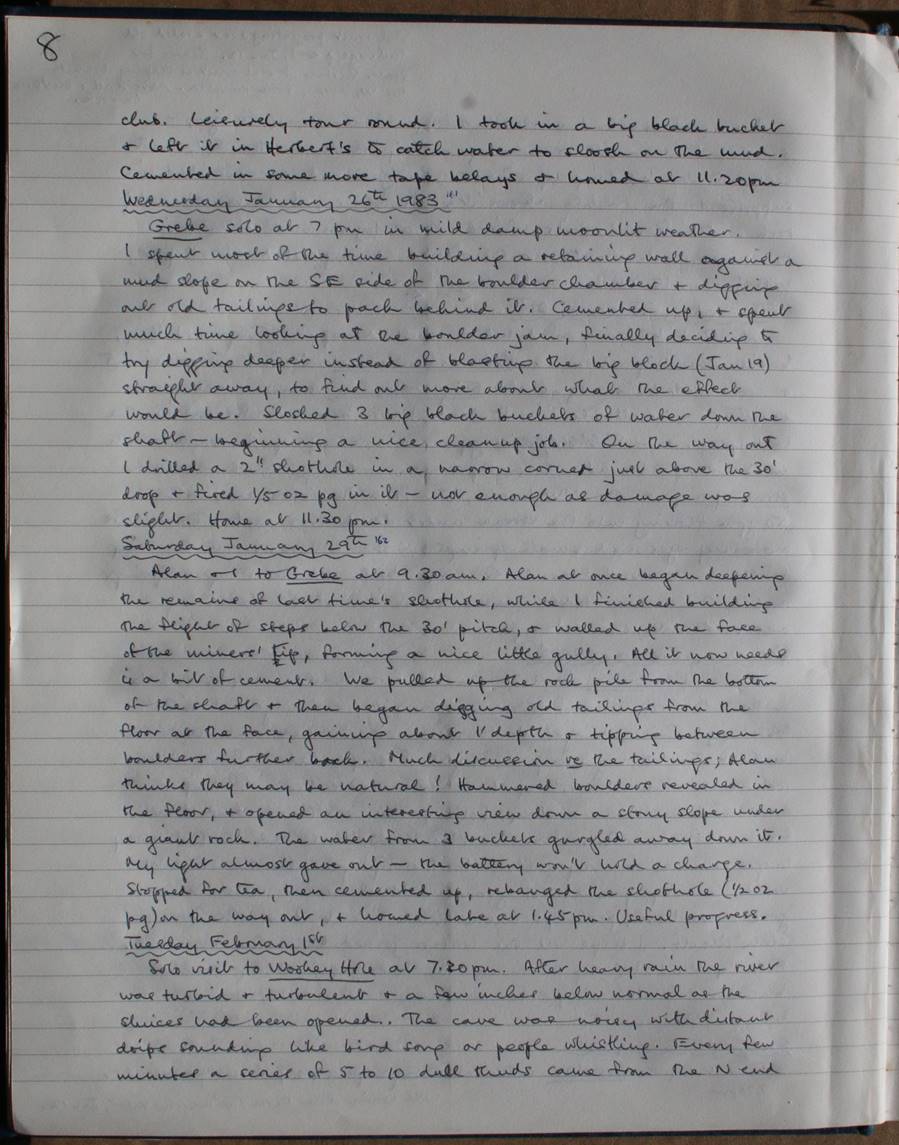 8
club. Leisurely tour round. I took in a big black bucket
+ left it in Herbert's to catch water to sloosh on the mud.
Cemented in some more tape belays + homed at 11.20pm
Wednesday January 26th 1983 161
Grebe solo at 7 pm in mild damp moonlit weather.
I spent most of the time building a retaining wall against a
mud slope on the SE side of the boulder chamber + digging
out old tailings to pack behind it. Cemented up, + spent
much time looking at the boulder jam, finally deciding to
try digging deeper instead of blasting the big block (Jan 19)
straight away, to find out more about what the effect
would be. Sloshed 3 big black buckets of water down the
shaft — beginning a nice cleanup job. On the way out
I drilled a 2" shothole in a narrow corner just above the 30'
drop + fired 1/5 oz pg in it — not enough as damage was
slight. Home at 11.30 pm.
Saturday January 29th 162
Alan + I to Grebe at 9.30am. Alan at once began deepening
the remains of last time's shothole, while I finished building
the flight of steps below the 30' pitch, + walled up the face
of the miners' tip, forming a nice little gully. All it now needs
is a bit of cement. We pulled up the rock pile from the bottom
of the shaft + then began digging old tailings from the
floor at the face, gaining about 1' depth + tipping between
boulders further back. Much discussion re the tailings; Alan
thinks they may be natural! Hammered boulders revealed in
the floor, + opened an interesting view down a stony slope under
a giant rock. The water from 3 buckets gurgled away down it.
My light almost gave out — the battery won't hold a charge.
Stopped for tea, then cemented up, rebanged the shothole (1/2 oz
pg) on the way out, + homed late at 1.45pm. Useful progress.
Tuesday February 1st
Solo visit to Wookey Hole at 7.30pm. After heavy rain the river
was turbid + turbulent + a few inches below normal as the
sluices had been opened. The cave was noisy with distant
drips sounding like bird song or people whistling. Every few
minutes a series of 5 to 10 dull thuds came from the N end